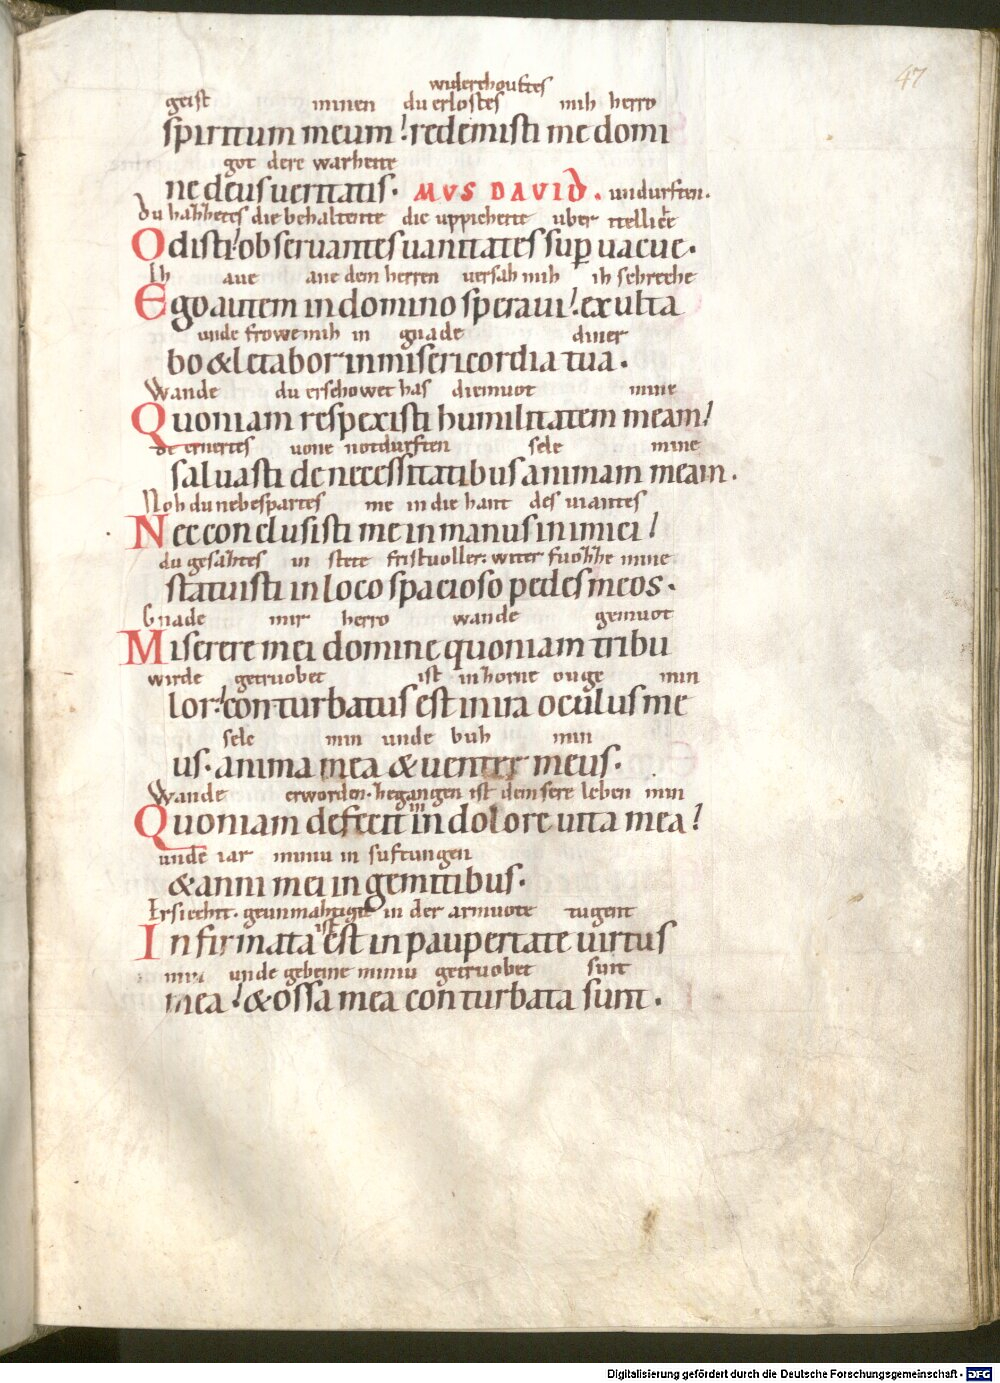 47
widerchouftes
geist minen du erlostes mih herro
spiritum meum redemisti me domi
got dere warheite
ne deus ueritatis. MVS DAVID. undurften.
du hahhetes die behaltente die uppicheite uber
Odisti observantes uanitates sup uacue.
Ih ave ane dem herren versah mih ih schreche
Ego autem in domino speraui exulta
unde frowe mih in gnade diner
bo & letabor in misericordia tua.
Wande du erschowet has diemuot mine
Quoniam respexisti humilitatem meam
de ernertes vone notdurften sele mine
saluasti de necessitatibus animam meam.
Noh du nebespartes me in die hant des viantes
Nec conclusisti me in manus inimici
du gesahtes in stete fristvoller witer fuohhe mine
statuisti in loco spacioso pedes meos.
Gnade mir herro wande gemuot
Miserere mei domine quoniam tribu
wirde getruobet ist in horne ouge min
lor conturbatus est in ira oculus me
sele min unde buh min
us. anima mea & uenter meus.
Wande erworden. begangen ist dem sere leben min
Quoniam defecit in dolore uita mea
unde iar minu in suftungen
& anni mei in gemitibus.
Ersiechit. geunmahtiget ist in der armuote tugent
Infirmata est in paupertate uirtus
unde gebeine minu getruobet sint
mea & ossa mea conturbata sunt.
Digitalisierung gefördert durch die Deutsche Forschungsgemeinschaft - DFG